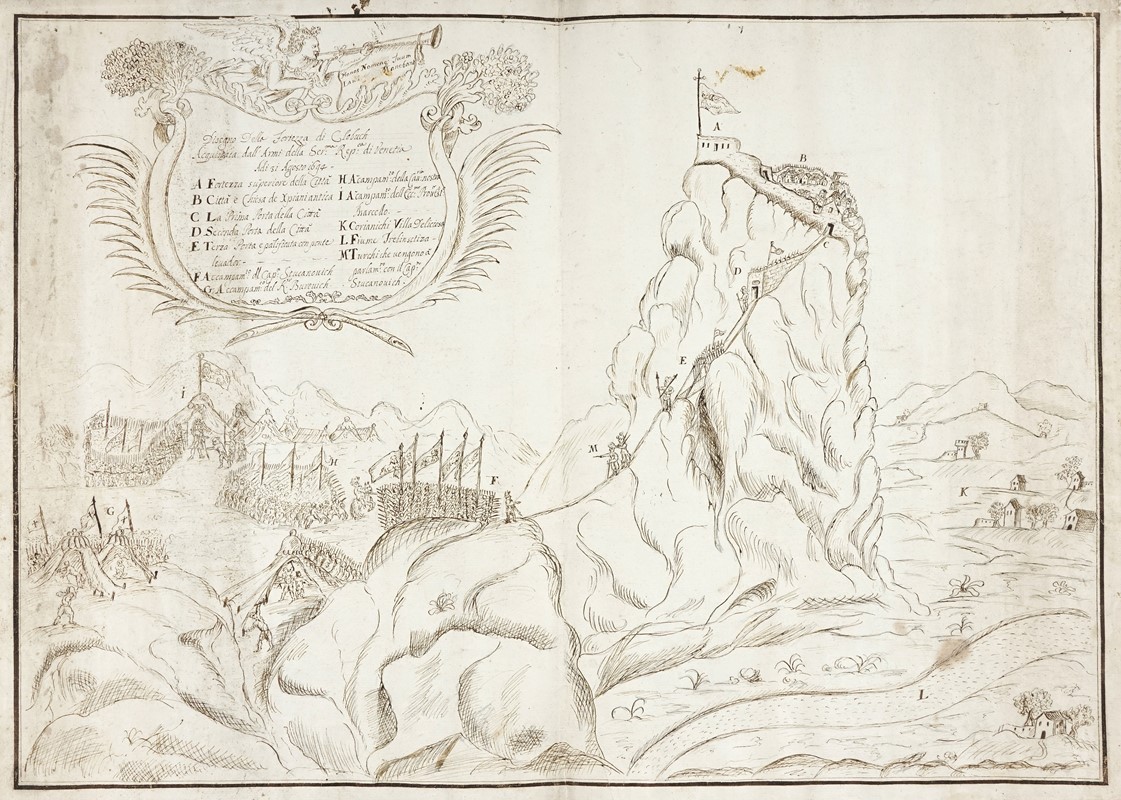 Disegno Della Fortezza di Clobuch
Acquistata dall' Armi della Ser.ma Rep.ca di Venetia
Adi 21 Agosto 1694
A Fortezza superiore della Città
B Città e Chiesa de Xpiani antica
C La Prima Porta della Città
D Seconda Porta della Città
E Terza Porta e palificata con ponte
leuador
F Accampam.to del Cap.o Stucanouich
G Accampam.to del K. Burouich
H Acampam.to della
I Acampam.to dell' Ecc.mo
K Corianichi Villa Deliciosa
L Fiume
M Turchi che vengono a
parlam.to con il Cap.o
Stucanouich
A
B
D
E
M
F
H
I
G
K
L